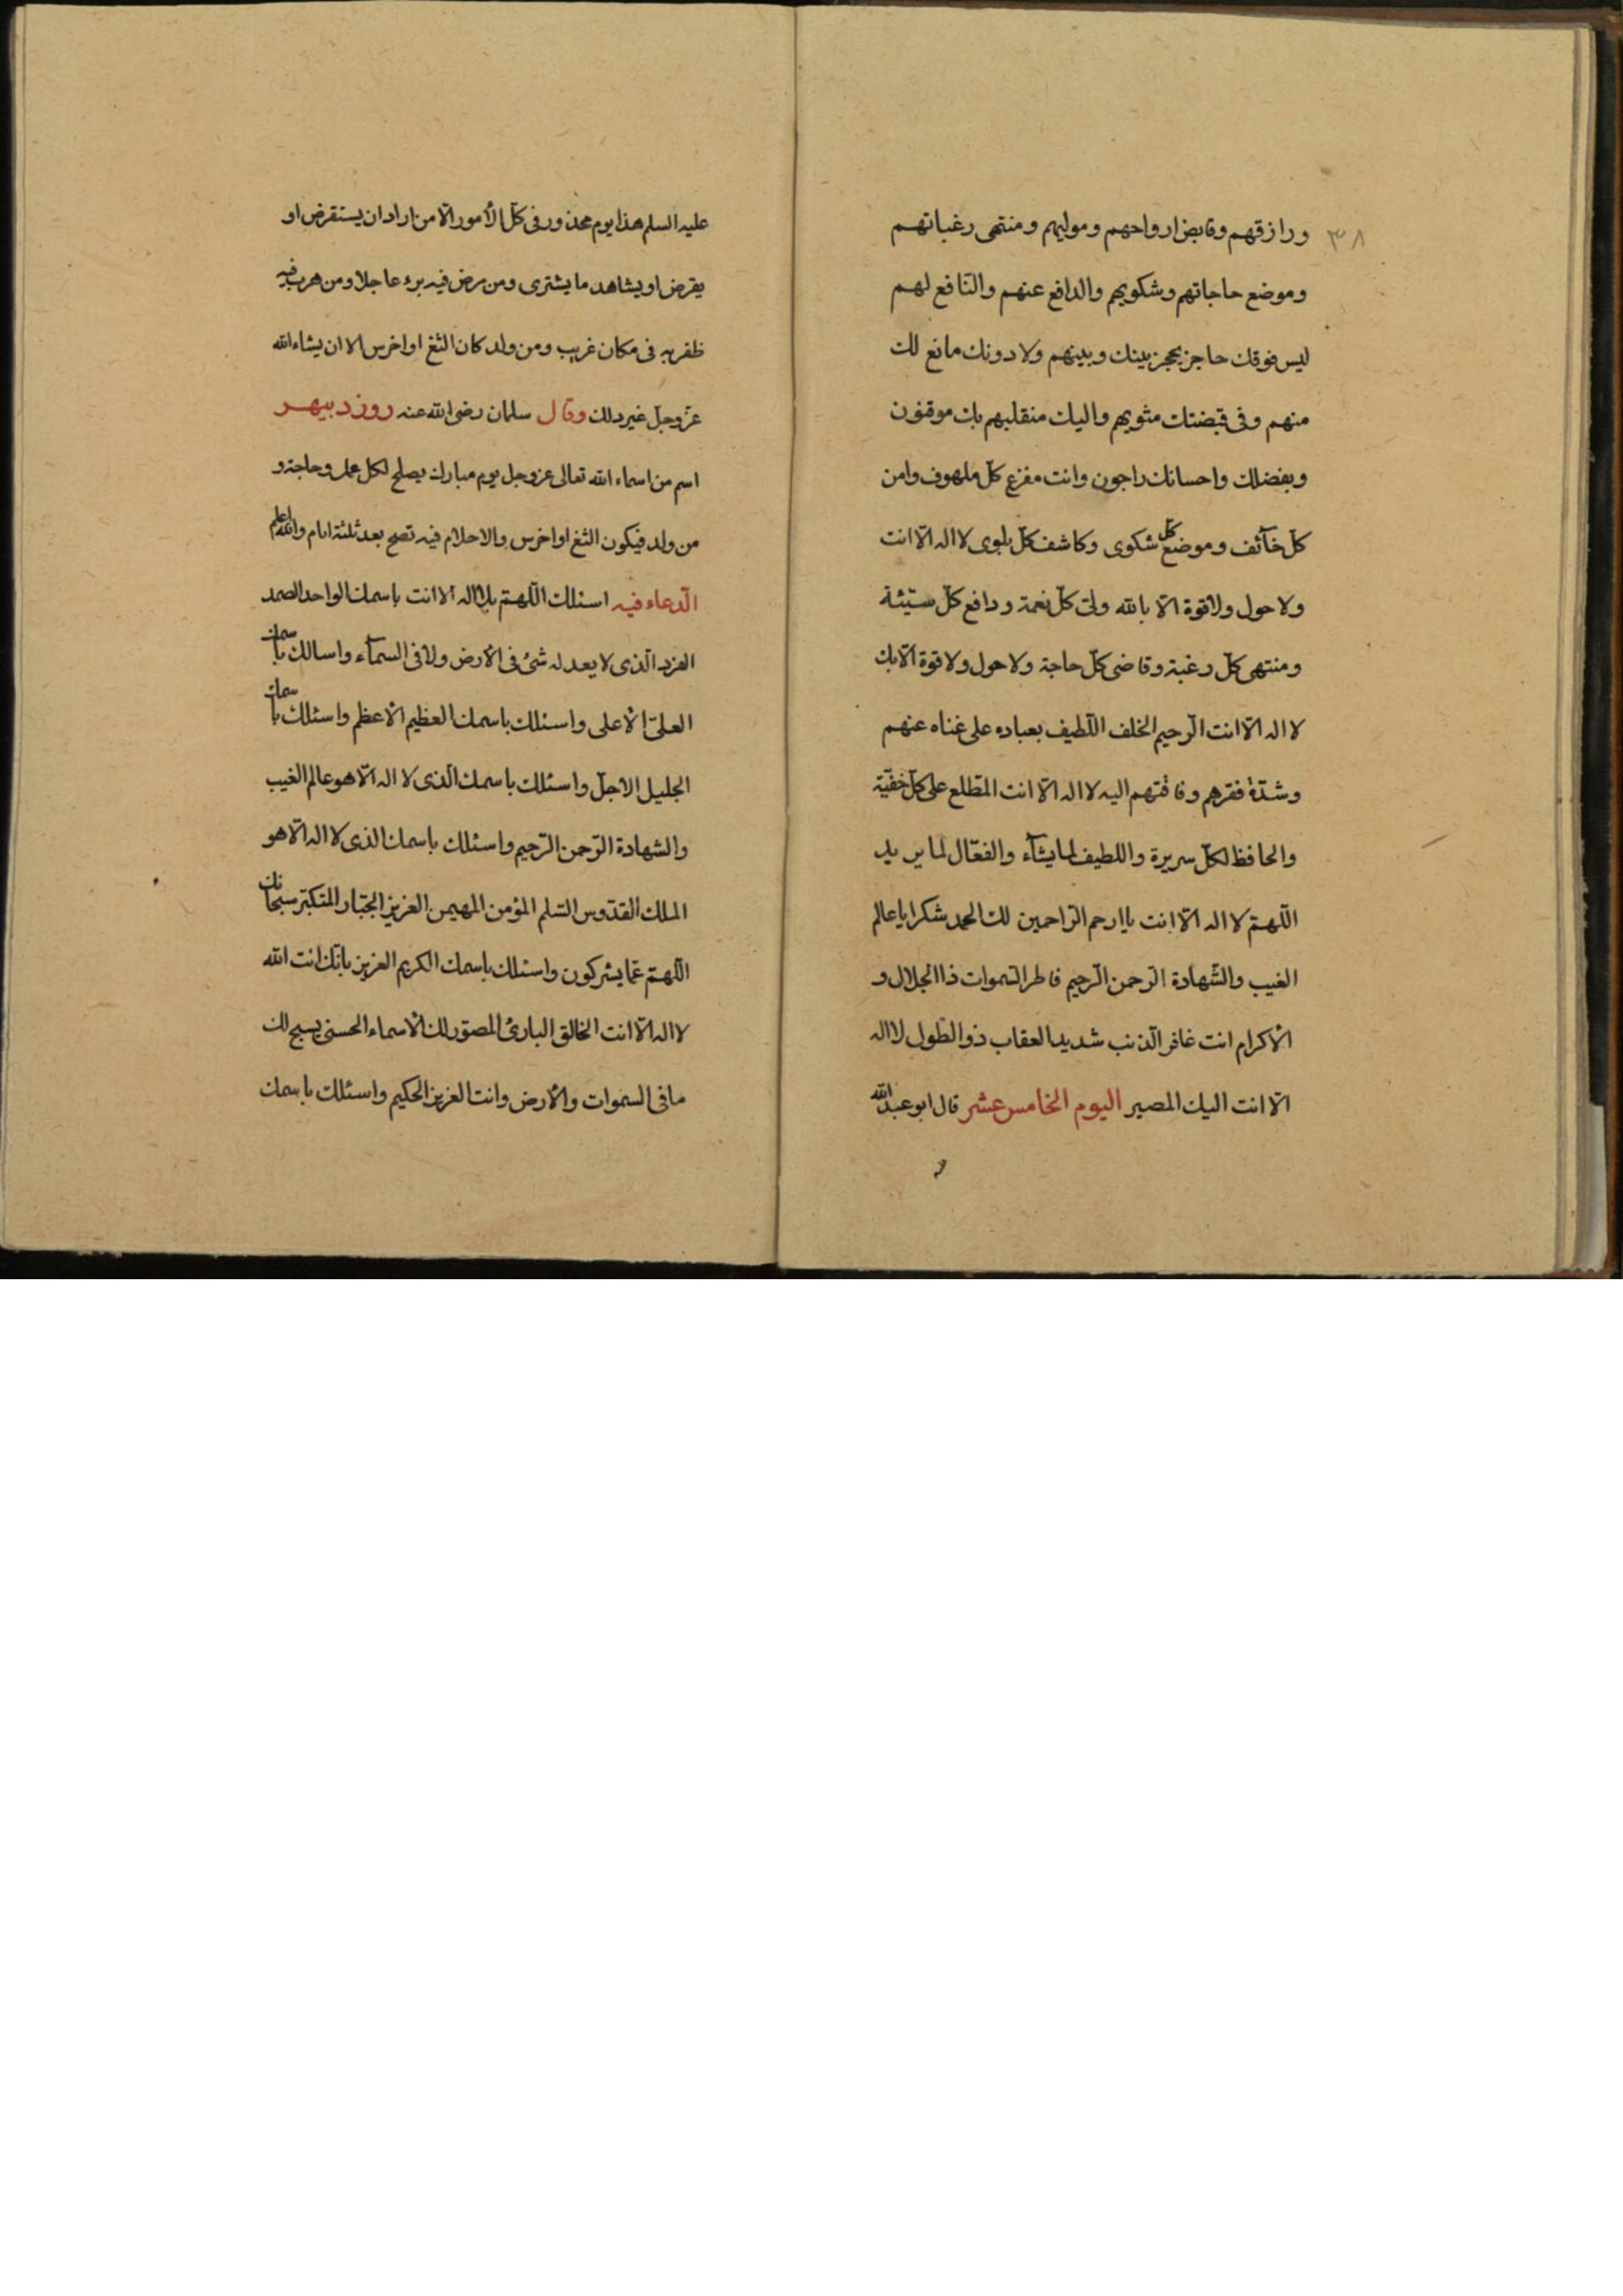 ٣٨
ورازقهم وقابض ارواحهم وموليهم ومنتهى رغباتهم
وموضع حاجاتهم وشكويهم والدافع عنهم والنافع لهم
ليس فوقك حاجز يحجز بينك وبينهم ولا دونك مانع لك
منهم وفى قبضتك مثويهم واليك منقلبهم بك موقنون
وبفضلك واحسانك راجون وانت مفزع كلّ ملهوف وامن
كلّ خآئف وموضع كلّ شكوى وكاشف كلّ بلوى لا اله الّا انت
ولا حول ولا قوة الّا بالله ولىّ كلّ نعمة ودافع كلّ سيّئة
ومنتهى كلّ رغبة وقاضى كلّ حاجة ولا حول ولا قوة الّا بك
لا اله الّا انت الرّحيم الخلف اللّطيف بعباده على غناه عنهم
وشدّة فقرهم وفاقتهم اليه لا اله الّا انت المطّلع على كلّ خفيّة
والحافظ لكلّ سريرة واللطيف لما يشآء والفعّال لما يريد
اللّهمّ لا اله الّا انت يا ارحم الرّاحمين لك الحمد شكرا يا عالم
الغيب والشّهادة الرّحمن الرّحيم فاطر السّموات ذا الجلال و
الأكرام انت غافر الذّنب شديد العقاب ذو الطّول لا اله
الّا انت اليك المصير اليوم الخامس عشر قال ابو عبد الله
عليه السلم هذا يوم محذور فى كلّ الأمور الّا من اراد ان يستقرض او
يقرض او يشاهد ما يشترى ومن مرض فيه برء عاجلا ومن هرب فيه
ظفر به فى مكان غريب ومن ولد كان الثغ او اخرس الا ان يشاء الله
عزّ وجلّ غير ذلك وقال سلمان رضى الله عنه روز دبيمهر
اسم من اسماء الله تعالى عز وجل يوم مبارك يصلح لكل عمل وحاجة و
من ولد فيكون الثغ او اخرس والاحلام فيه تصح بعد ثلثة ايام والله اعلم
الدّعاء فيه اسئلك اللّهمّ بلا اله الا انت باسمك الواحد الصمد
الفرد الّذى لا يعدله شئ فى الأرض ولا فى السمآء واسالك باسمك
العلىّ الأعلى واسئلك باسمك العظيم الأعظم واسئلك باسمك
الجليل الاجلّ واسئلك باسمك الّذى لا اله الّا هو عالم الغيب
والشهادة الرّحمن الرّحيم واسئلك باسمك الذى لا اله الّا هو
الملك القدّوس السّلم المؤمن المهيمن العزيز الجبّار المتكبّر سبحانك
اللّهمّ عمّا يشركون واسئلك باسمك الكريم العزيز بانّك انت الله
لا اله الّا انت الخالق البارئ المصوّر لك الأسماء الحسنى يسبح لك
ما فى السموات والأرض وانت العزيز الحكيم واسئلك باسمك